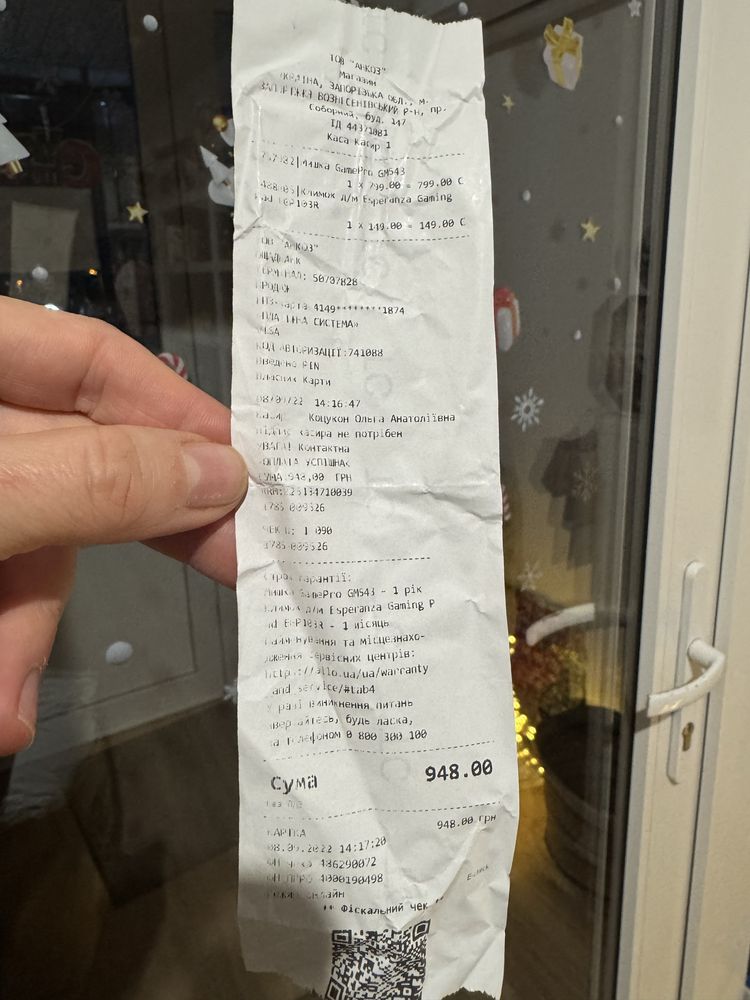 ТОВ "АНКОЗ"
Магазин
УКРАЇНА, ЗАПОРІЗЬКА ОБЛ., м.
ЗАПОРІЖЖЯ ВОЗНЕСЕНІВСЬКИЙ Р-Н, пр.
Соборний, буд. 147
ІД 44371081
Каса Касир 1
Мишка GamePro GM543
1 X 799.00 = 799.00 С
Килимок д/м Esperanza Gaming
EGP103R
1 X 149.00 = 149.00 С
ТОВ "АНКОЗ"
ОЩАДБАНК
ТЕРМІНАЛ: S0707828
ПРОДАЖ
картка 4149********1874
ПЛАТІЖНА СИСТЕМА»
VISA
КОД АВТОРИЗАЦІЇ:741088
Введено PIN
Власник Карти
08/09/22 14:16:47
Касир: Коцукон Ольга Анатоліївна
Підпис касира не потрібен
УВАГА! Контактна
ОПЛАТА УСПІШНА<
СУМА:948,00 ГРН
RRN:225134710039
1785-009526
ЧЕК N: 1 090
1785-009526
Строк гарантії:
Мишка GamePro GM543 - 1 рік
Килимок д/м Esperanza Gaming P
ad EGP103R - 1 місяць
Найменування та місцезнахо-
дження сервісних центрів:
https://allo.ua/ua/warranty
_and_service/#tab4
У разі виникнення питань
звертайтесь, будь ласка,
за телефоном 0 800 300 100
Сума 948.00
Без ПДВ
КАРТКА 948.00 грн
08.09.2022 14:17:20
ФН чека 486290072
ФН ПРРО 4000190498
Режим онлайн
E-check
** Фіскальний чек **